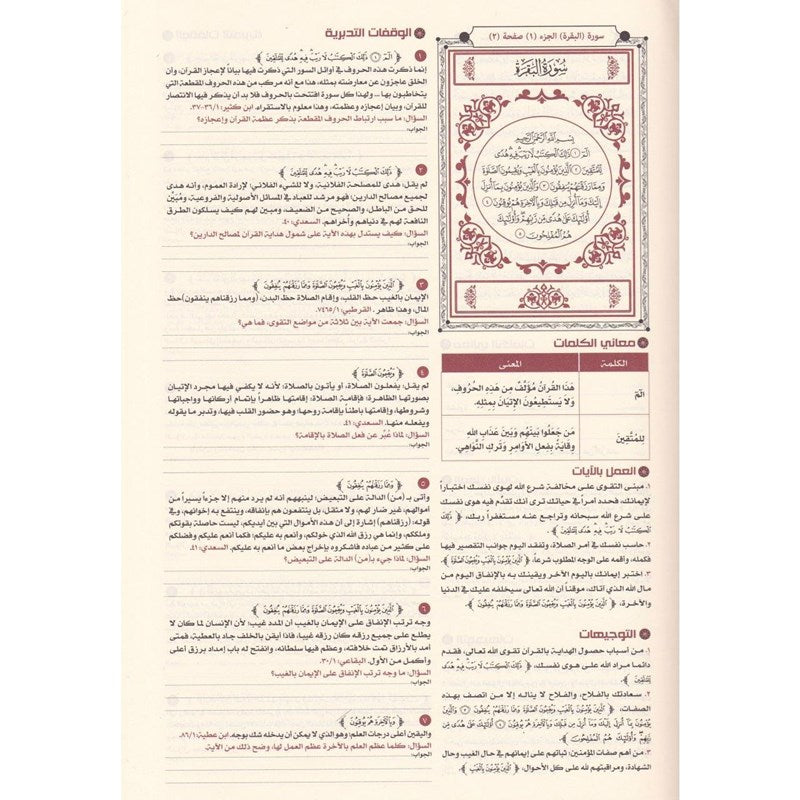 سورة (البقرة) الجزء (١) صفحة (٢)
سُورَةُ البَقَرَةِ
بِسْمِ اللَّهِ الرَّحْمَٰنِ الرَّحِيمِ
الٓمٓ ١ ذَٰلِكَ الْكِتَٰبُ لَا رَيْبَ فِيهِ هُدًى
لِّلْمُتَّقِينَ ٢ الَّذِينَ يُؤْمِنُونَ بِالْغَيْبِ وَيُقِيمُونَ الصَّلَوٰةَ
وَمِمَّا رَزَقْنَٰهُمْ يُنفِقُونَ ٣ وَالَّذِينَ يُؤْمِنُونَ بِمَا أُنزِلَ
إِلَيْكَ وَمَا أُنزِلَ مِن قَبْلِكَ وَبِالْآخِرَةِ هُمْ يُوقِنُونَ ٤
أُولَٰئِكَ عَلَىٰ هُدًى مِّن رَّبِّهِمْ وَأُولَٰئِكَ
هُمُ الْمُفْلِحُونَ ٥
معاني الكلمات
الكلمة المعنى
الم هَذَا القُرآنُ مُؤَلَّفٌ مِن هَذِهِ الحُرُوفِ،
وَلَا يَسْتَطِيعُونَ الإِتيَانَ بِمِثلِهِ.
لِلمُتَّقِينَ مَن جَعَلُوا بَينَهُم وَبَينَ عَذَابِ اللهِ
وِقَايَةً بِفِعلِ الأَوَامِرِ وَتَركِ النَّوَاهِي.
العمل بالآيات
١. مبنى التقوى على مخالفة شرع الله لهوى نفسك اختباراً
لإيمانك، فحدد أمراً في حياتك ترى أنك تقدّم فيه هوى نفسك
على شرع الله سبحانه وتراجع عنه مستغفراً ربك، ﴿ ذَٰلِكَ
الْكِتَٰبُ لَا رَيْبَ فِيهِ هُدًى لِّلْمُتَّقِينَ ﴾.
٢. حاسب نفسك في أمر الصلاة، وتفقد اليوم جوانب التقصير فيها
فكمله، وأقمه على الوجه المطلوب شرعاً، ﴿ الَّذِينَ يُؤْمِنُونَ بِالْغَيْبِ وَيُقِيمُونَ الصَّلَوٰةَ ﴾.
٣. اختبر إيمانك باليوم الآخر ويقينك به بالإنفاق اليوم من
مال الله الذي آتاك، موقناً أن الله تعالى سيخلفه عليك في الدنيا
والآخرة، ﴿ الَّذِينَ يُؤْمِنُونَ بِالْغَيْبِ وَيُقِيمُونَ الصَّلَوٰةَ وَمِمَّا رَزَقْنَٰهُمْ يُنفِقُونَ ﴾.
التوجيهات
١. من أسباب حصول الهداية بالقرآن تقوى الله تعالى، فقدم
دائما مراد الله على هوى نفسك، ﴿ ذَٰلِكَ الْكِتَٰبُ لَا رَيْبَ فِيهِ هُدًى
لِّلْمُتَّقِينَ ﴾.
٢. سعادتك بالفلاح، والفلاح لا يناله إلا من اتصف بهذه
الصفات، ﴿ الَّذِينَ يُؤْمِنُونَ بِالْغَيْبِ وَيُقِيمُونَ الصَّلَوٰةَ وَمِمَّا رَزَقْنَٰهُمْ يُنفِقُونَ ٣ وَالَّذِينَ
يُؤْمِنُونَ بِمَا أُنزِلَ إِلَيْكَ وَمَا أُنزِلَ مِن قَبْلِكَ وَبِالْآخِرَةِ هُمْ يُوقِنُونَ ٤ أُولَٰئِكَ عَلَىٰ هُدًى مِّن
رَّبِّهِمْ وَأُولَٰئِكَ هُمُ الْمُفْلِحُونَ ﴾.
٣. من أهم صفات المؤمنين: ثباتهم على إيمانهم في حال الغيب وحال
الشهادة، ومراقبتهم لله على كل الأحوال، ﴿ الَّذِينَ يُؤْمِنُونَ بِالْغَيْبِ ﴾.
الوقفات التدبرية
١ ﴿ الٓمٓ ١ ذَٰلِكَ الْكِتَٰبُ لَا رَيْبَ فِيهِ هُدًى لِّلْمُتَّقِينَ ﴾
إنما ذكرت هذه الحروف في أوائل السور التي ذكرت فيها بياناً لإعجاز القرآن، وأن
الخلق عاجزون عن معارضته بمثله، هذا مع أنه مركب من هذه الحروف المقطعة التي
يتخاطبون بها ... ولهذا كل سورة افتتحت بالحروف فلا بد أن يذكر فيها الانتصار
للقرآن، وبيان إعجازه وعظمته، وهذا معلوم بالاستقراء. ابن كثير: ٣٦/١-٣٧.
السؤال: ما سبب ارتباط الحروف المقطعة بذكر عظمة القرآن وإعجازه؟
الجواب:
٢ ﴿ ذَٰلِكَ الْكِتَٰبُ لَا رَيْبَ فِيهِ هُدًى لِّلْمُتَّقِينَ ﴾
لم يقل: هدى للمصلحة الفلانية، ولا للشيء الفلاني؛ لإرادة العموم، وأنه هدى
لجميع مصالح الدارين؛ فهو مرشد للعباد في المسائل الأصولية والفروعية، ومُبيّن
للحق من الباطل، والصحيح من الضعيف، ومبين لهم كيف يسلكون الطرق
النافعة لهم في دنياهم وأخراهم. السعدي: ٤٠.
السؤال: كيف يستدل بهذه الآية على شمول هداية القرآن لمصالح الدارين؟
الجواب:
٣ ﴿ الَّذِينَ يُؤْمِنُونَ بِالْغَيْبِ وَيُقِيمُونَ الصَّلَوٰةَ وَمِمَّا رَزَقْنَٰهُمْ يُنفِقُونَ ﴾
الإيمان بالغيب حظ القلب، وإقام الصلاة حظ البدن، (ومما رزقناهم ينفقون) حظ
المال، وهذا ظاهر. القرطبي:
السؤال: جمعت الآية بين ثلاثة من مواضع التقوى، فما هي؟
الجواب:
٤ ﴿ وَيُقِيمُونَ الصَّلَوٰةَ ﴾
لم يقل: يفعلون الصلاة، أو يأتون بالصلاة، لأنه لا يكفي فيها مجرد الإتيان
بصورتها الظاهرة؛ فإقامة الصلاة، إقامتها ظاهراً بإتمام أركانها وواجباتها
وشروطها، وإقامتها باطناً بإقامة روحها؛ وهو حضور القلب فيها، وتدبر ما يقوله
ويفعله منها. السعدي: ٤١.
السؤال: لماذا عُبّر عن فعل الصلاة بالإقامة؟
الجواب:
٥ ﴿ وَمِمَّا رَزَقْنَٰهُمْ يُنفِقُونَ ﴾
وأتى بـ (من) الدالة على التبعيض؛ لينبههم أنه لم يرد منهم إلا جزءاً يسيراً من
أموالهم، غير ضار لهم، ولا مثقل، بل ينتفعون هم بإنفاقه، وينتفع به إخوانهم، وفي
قوله: (رزقناهم) إشارة إلى أن هذه الأموال التي بين أيديكم، ليست حاصلة بقوتكم
وملككم، وإنما هي رزق الله الذي خولكم، وأنعم به عليكم؛ فكما أنعم عليكم وفضلكم
على كثير من عباده فاشكروه بإخراج بعض ما أنعم به عليكم. السعدي: ٤١.
السؤال: لماذا جيء بـ(من) الدالة على التبعيض؟
الجواب:
٦ ﴿ الَّذِينَ يُؤْمِنُونَ بِالْغَيْبِ وَيُقِيمُونَ الصَّلَوٰةَ وَمِمَّا رَزَقْنَٰهُمْ يُنفِقُونَ ﴾
وجه ترتب الإنفاق على الإيمان بالغيب أن المدد غيب؛ لأن الإنسان لما كان لا
يطلع على جميع رزقه كان رزقه غيبا، فإذا أيقن بالخلف جاد بالعطية، فمتى
أمد بالأرزاق تمت خلافته، وعظم فيها سلطانه، وانفتح له باب إمداد برزق أعلى
وأكمل من الأول. البقاعي: ٣٠/١.
السؤال: ما وجه ترتب الإنفاق على الإيمان بالغيب؟
الجواب:
٧ ﴿ وَبِالْآخِرَةِ هُمْ يُوقِنُونَ ﴾
واليقين أعلى درجات العلم؛ وهو الذي لا يمكن أن يدخله شك بوجه. ابن عطية: ٨٦/١.
السؤال: كلما عظم العلم بالآخرة عظم العمل لها، وضح ذلك من الآية.
الجواب: